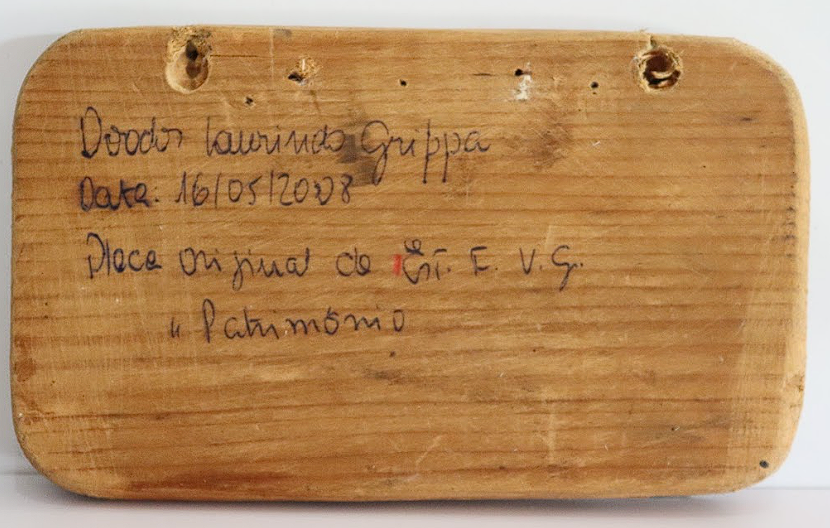 Doador Laurindo Grippa
Data: 16/05/2008
Placa original da Est. F. V. G.
" Patrimônio